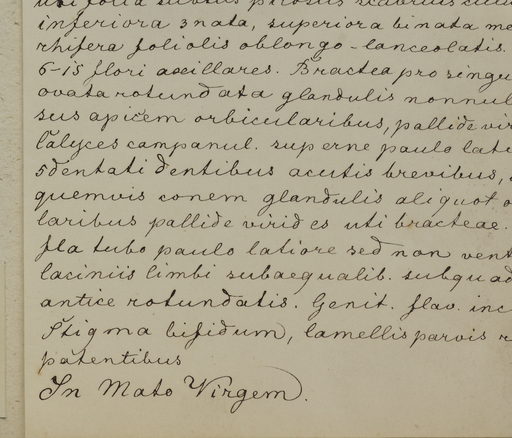 folia subtus pilosus scabrius
inferiora 3nata, superiora binata
rhifera foliolis oblongo-lanceolatis.
6-15 flori axillares. Bractea pro singu
ovata rotundata glandulis nonnul
sus apicem orbicularibus, pallide vir
Calyces campanul. superne paulo late
5dentati dentibus acutis brevibus,
quemvis conem glandulis aliquot o
laribus pallide virides uti bracteae.
fla tubo paulo latiore sed non vent
laciniis limbi subaequalib. subquad
antice rotundatis. Genit. flav. inc
Stigma bifidum, lamellis parvis r
patentibus
In Mato Virgem.